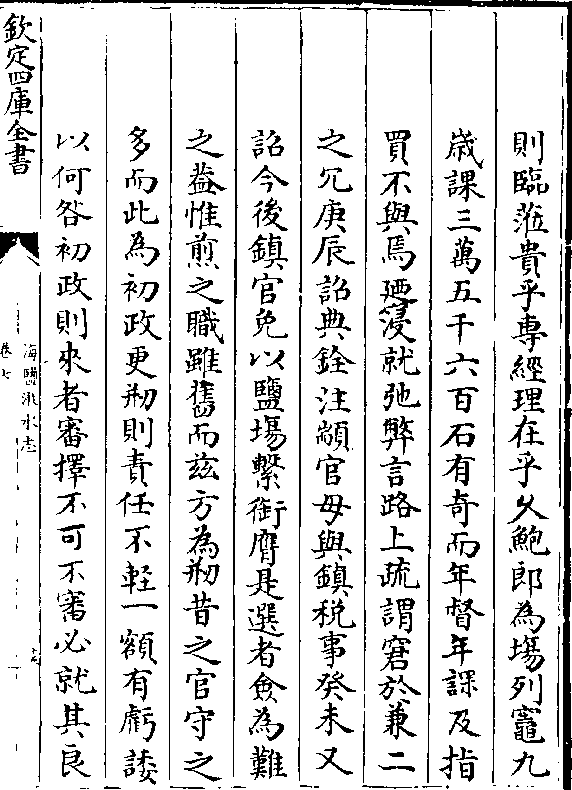 則臨蒞貴乎專經理在乎久鮑郎為塲列竈九
歲課三萬五千六百石有奇而年督年課及指
買不與焉廼寖就弛弊言路上疏謂窘於兼二
之冗庚辰詔典銓注顓官毋與鎮稅事癸未又
詔今後鎮官免以鹽塲繫銜膺是選者僉為難
之葢惟煎之職雖舊而兹方為剏昔之官守之
多而此為初政更剏則責任不輕一額有虧諉
以何咎初政則來者審擇不可不審必就其良
欽定四庫全書
海鹽澉水志
卷七